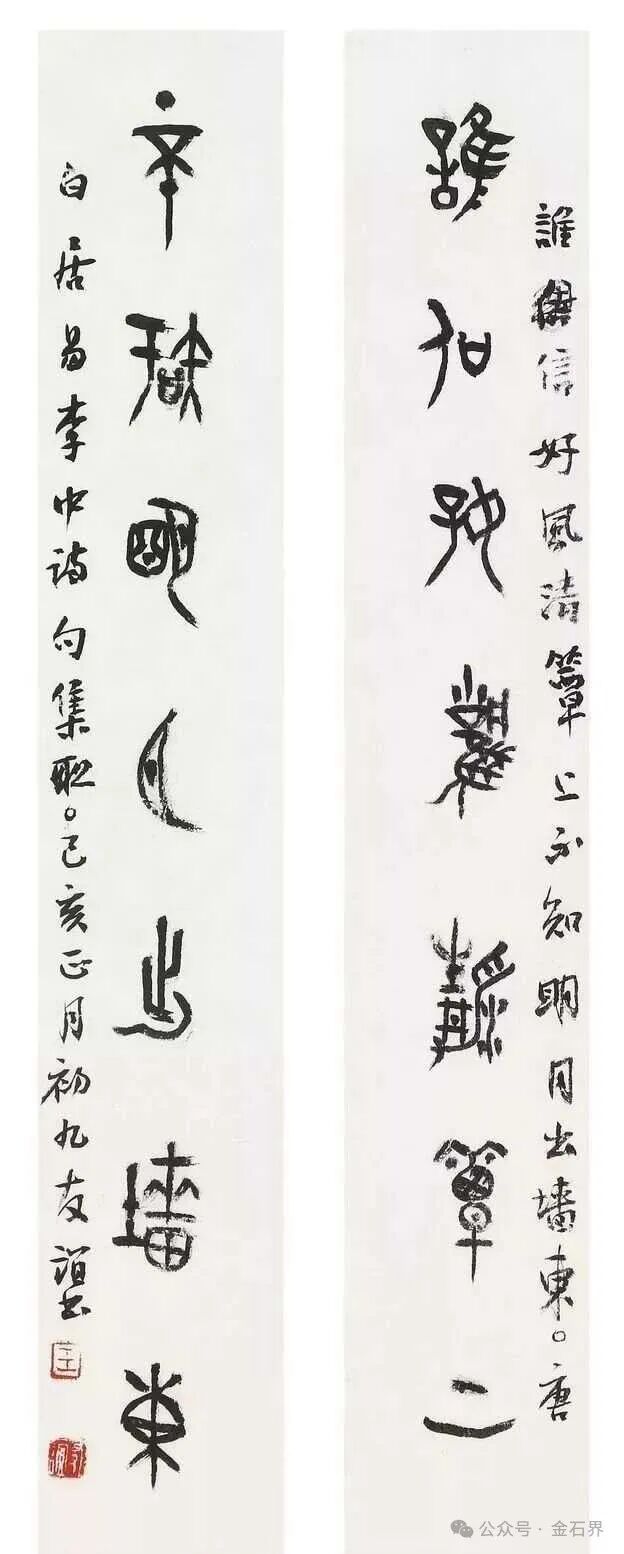 誰信好風清簟上
不知明月出墻東
誰信好風清簟上不知明月出墻東。唐
白居易李中詩句集聯。己亥正月初九友誼书
公众号·金石界